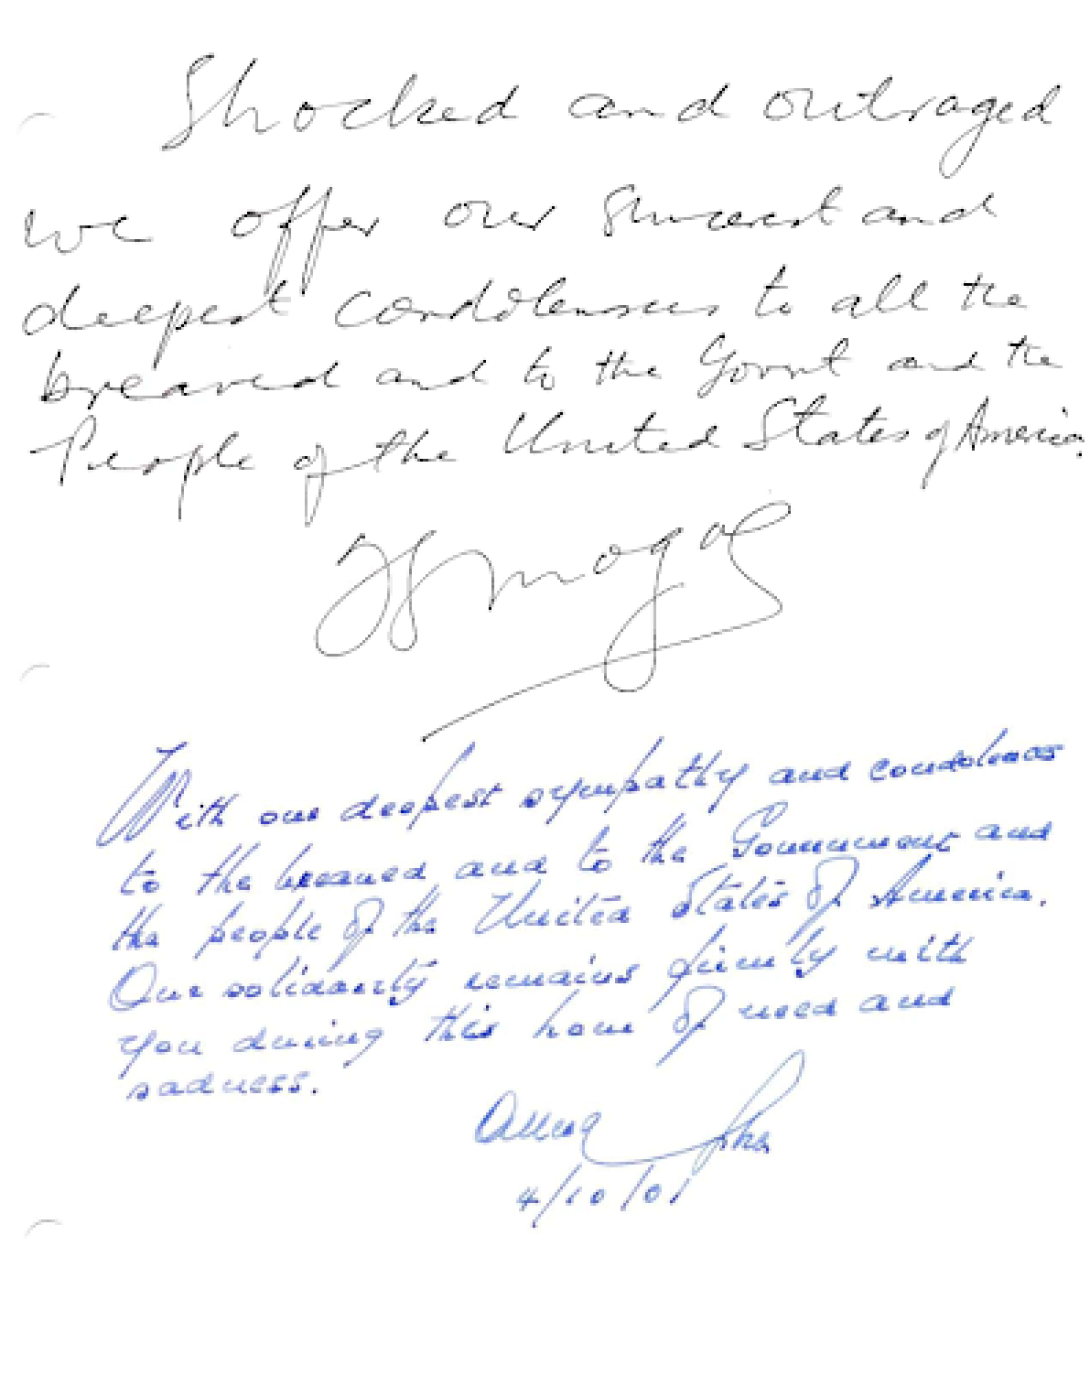 Shocked and outraged
we offer our sincerest and
deepest condolences to all the
breaved and to the Govnt and the
People of the United States of America.
With our deepest sympathy and condolences
to the breaved and to the Government and
the people of the United States of America.
Our solidarity remains firmly with
you during this hour of need and
sadness.
4/10/01